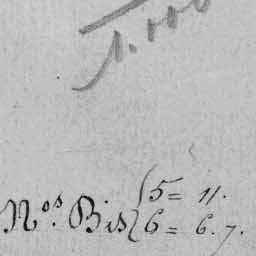 1.000
Nos. Bis { 5 = 11.
6 = 6. 7.